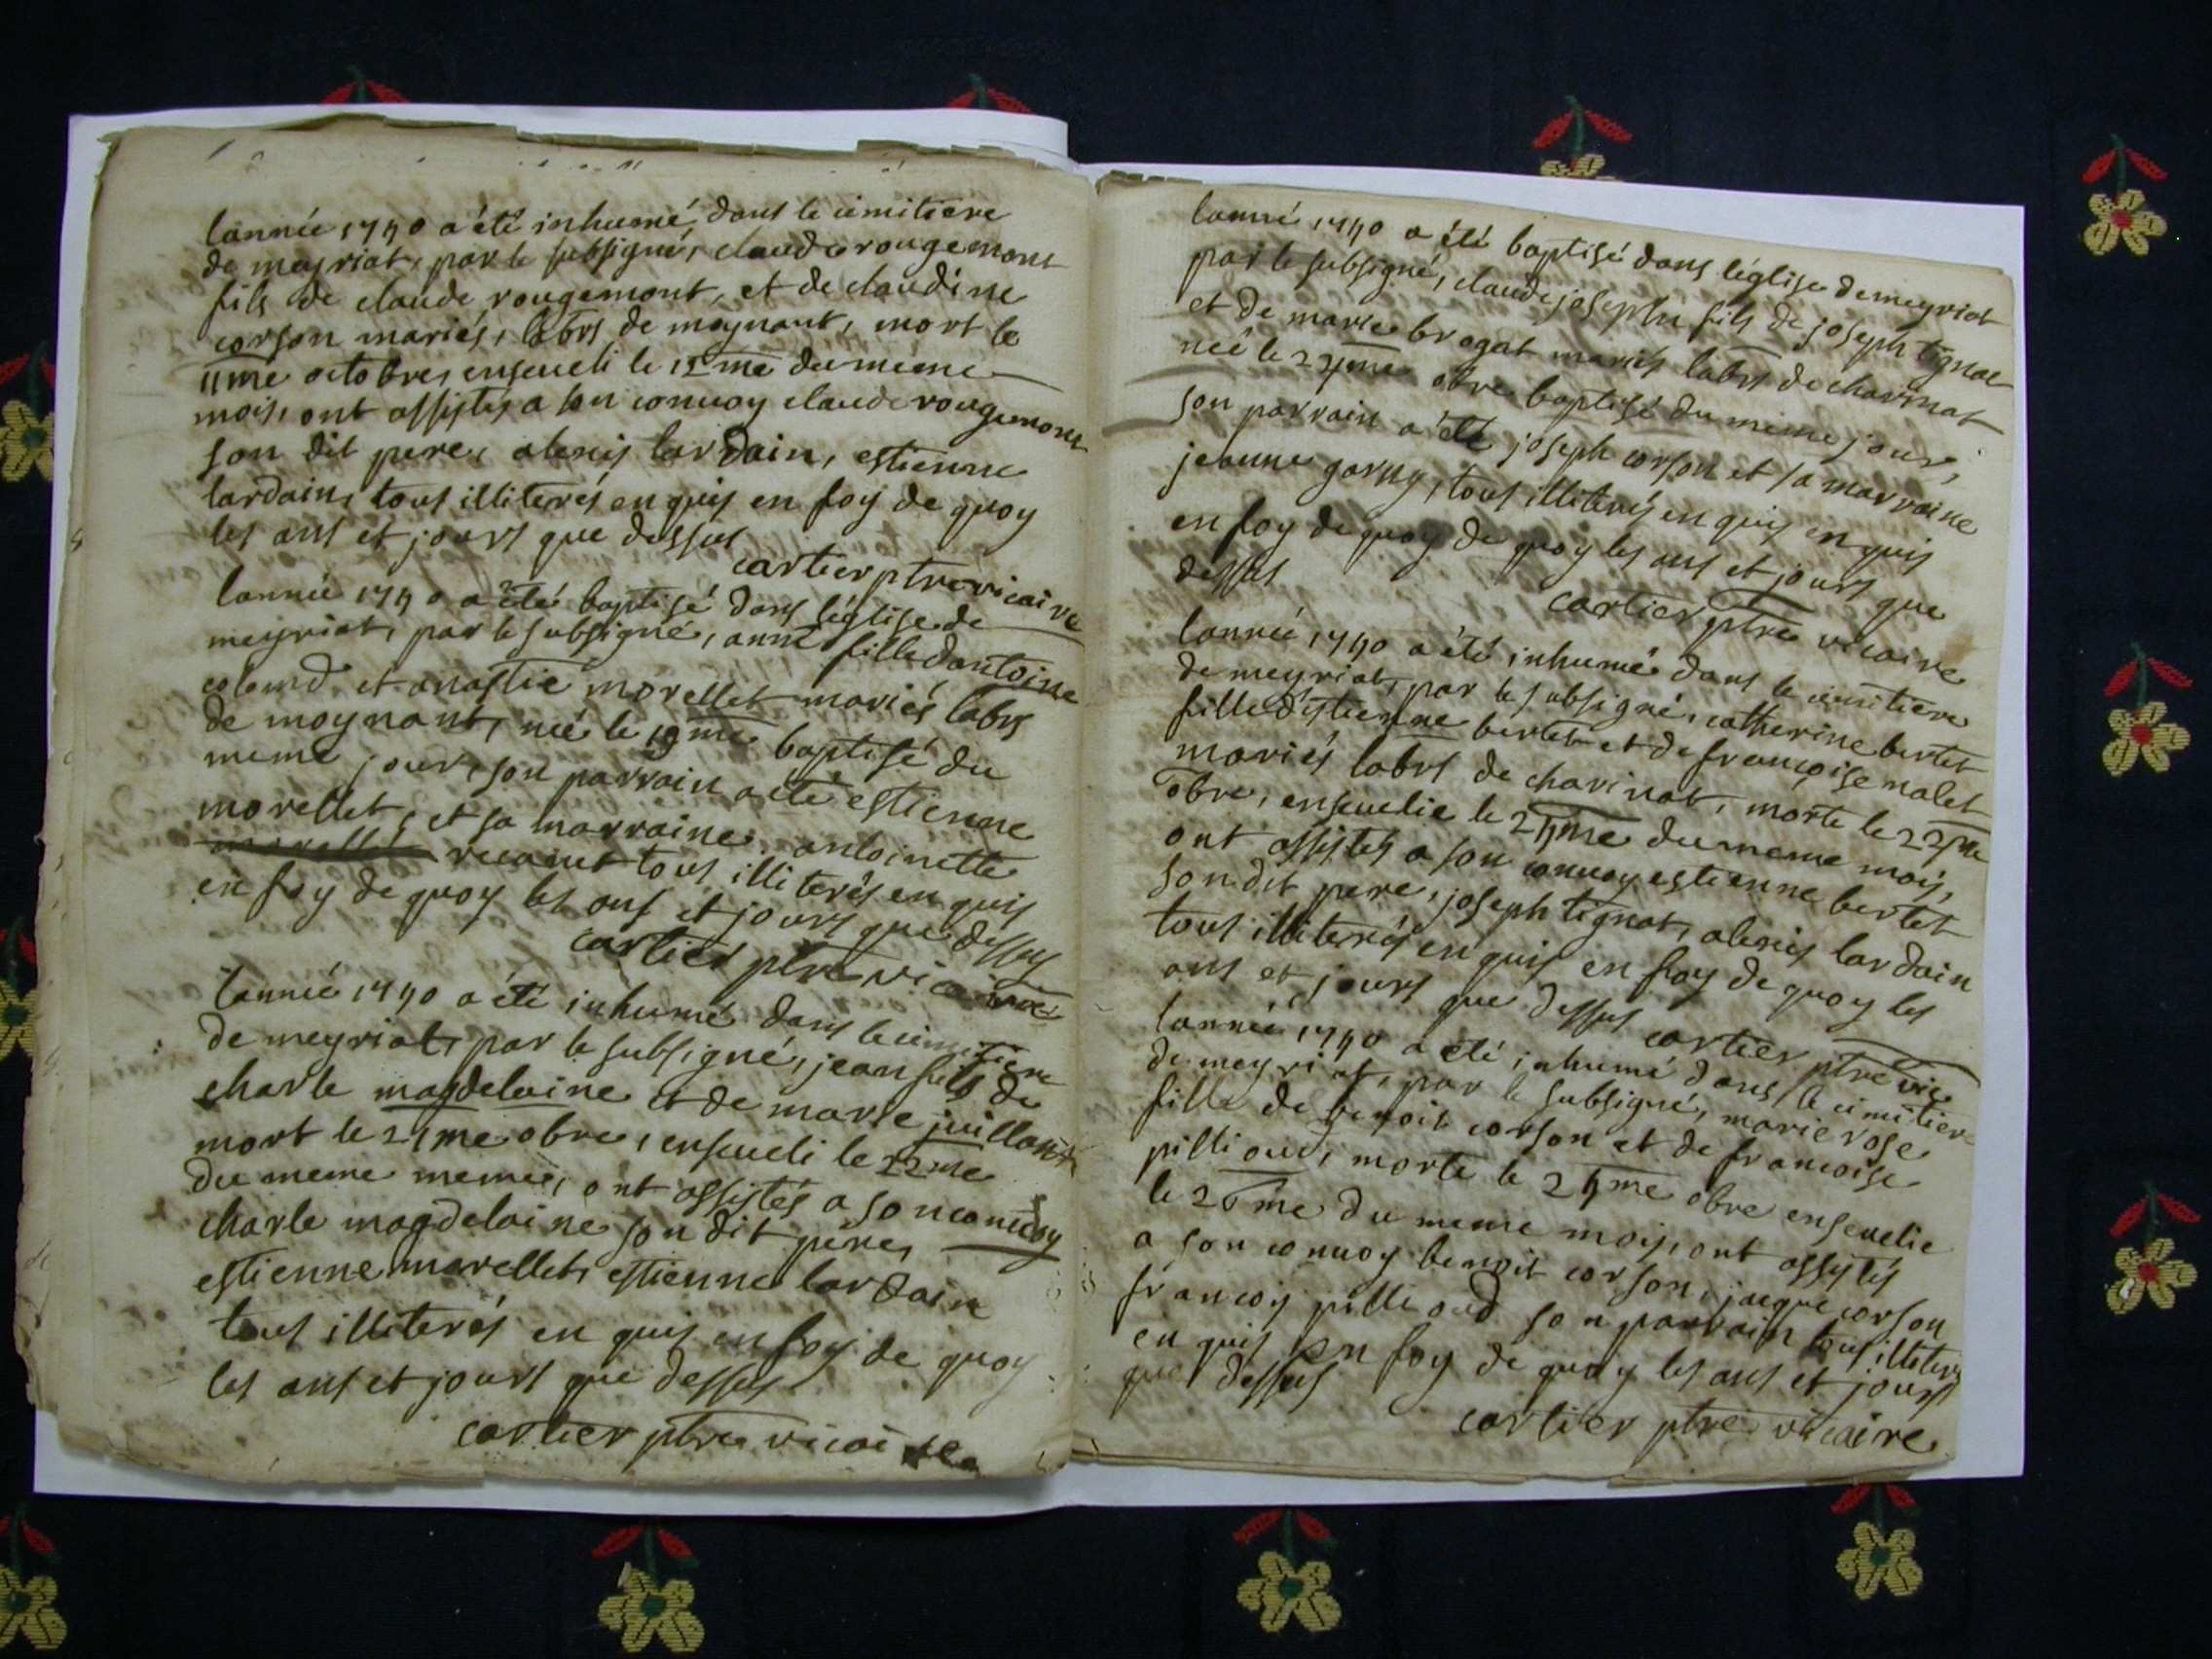 lannée 1740 a été inhumé, dans le cimitiere
de meyriat, par le subsigné, claude rougemont
fils de claude rougemont, et de claudine
corson mariés, labrs de moynant, mort le
11me octobre, enseveli le 12me du meme
mois, ont assistés a son convoy claude rougemont
son dit pere, alexis lardain, estienne
lardain, tous illiterés enquis en foy de quoy
les ans et jours que dessus
cartier ptre vicaire
lannée 1740 a été baptisé dans léglise de
meyriat, par le subsigné, anne fille dantoine
et anastie morellet mariés labrs
de moynant, née le 19me baptisé du
meme jour, son parrain a été estienne
morellet, et sa marraine antoinette
tous illiterés enquis
en foy de quoy les ans et jours que dessus
cartier ptre vicaire
lannée 1740 a été inhumé dans le cimitiere
de meyriat, par le subsigné, jean fils de
charle magdelaine et de marie juillant
mort le 21me obre, enseveli le 22me
du meme meme, ont assistés a son convoy
charle magdelaine son dit pere,
estienne morellet, estienne lardain
tous illiterés en quis en foy de quoy
les ans et jours que dessus
cartier ptre vicaire
lanné 1740 a été baptisé dans léglise de meyriat
par le subsigné, claude joseph fils de joseph tignat
et de marie brogat mariés labrs de charinat
neé le 22me obre baptisé du meme jour,
son parrain a été joseph corson et sa marraine
jeanne garny, tous illiterés enquis enquis
en foy de quoy de quoy les ans et jours que
dessus
cartier ptre vicaire
lannée 1740 a été inhumé dans le cimitiere
de meyriat, par le subsigné, catherine bertet
fille destienne bertet et de françoise nalet
mariés labrs de charinat, morte le 22me
obre, ensevelie le 24me du meme mois,
ont assistés a son convoy estienne bertet
son dit pere, joseph tignat, alexis lardain
tous illiterés en quis en foy de quoy les
ans et jours que dessus
cartier ptre vic
lannée 1740 a été inhumé dans le cimitiere
de meyriat, par le subsigné, marie rose
fille de benoit corson et de francoise
pillioud, morte le 24me obre ensevelie
le 26me du meme mois, ont assistés
a son convoy benoit corson, jacque corson
francois pillioud son parrain tous illiterés
en quis en foy de quoy les ans et jours
que dessus
cartier ptre vicaire